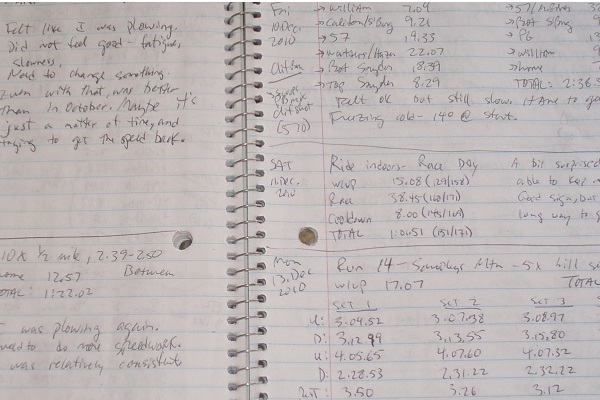 Felt like I was plowing.
Did not feel good - fatigue,
slowness.
Need to change something.
Even with that, was better
than in October. Maybe it's
just a matter of time, and
trying to get the speed back.
10 x 1/2 mile, 2.39-250
Home 12.57 Between
TOTAL: 1:22.02
I was plowing again.
need to do more speedwork.
was relatively consistent
Fri → William 7.09
10 Dec. 9.21
2010 → 57 19.33
22.07 → William
→ Bot Snyder 18.39 → home
→ Top Snyder 8.29 TOTAL: 2:36.5
(570)
Felt ok but still slow. Have to go
Freezing cold - 14° @ start.
SAT Ride indoors - Race Day A bit surprised
11 Dec. wup 15.08 (129/158) able to keep
2010 Race 38.45 (160/171) Good sign, but
Cooldown 8.00 (145/161) long way to
TOTAL 1:01.51 (151/171)
Mon Run 14 - Mtn - 5x hill
13. Dec wup 17.07 TOTAL
2010
SET 1 SET 2 SET 3
U: 3.04.52 3.07.38 3.08.97
D: 3.12.99 3.13.55 3.15.80
U: 4.05.65 4.07.60 4.07.32
D: 2.28.53 2.31.22 2.32.22
3.50 3.26 3.12